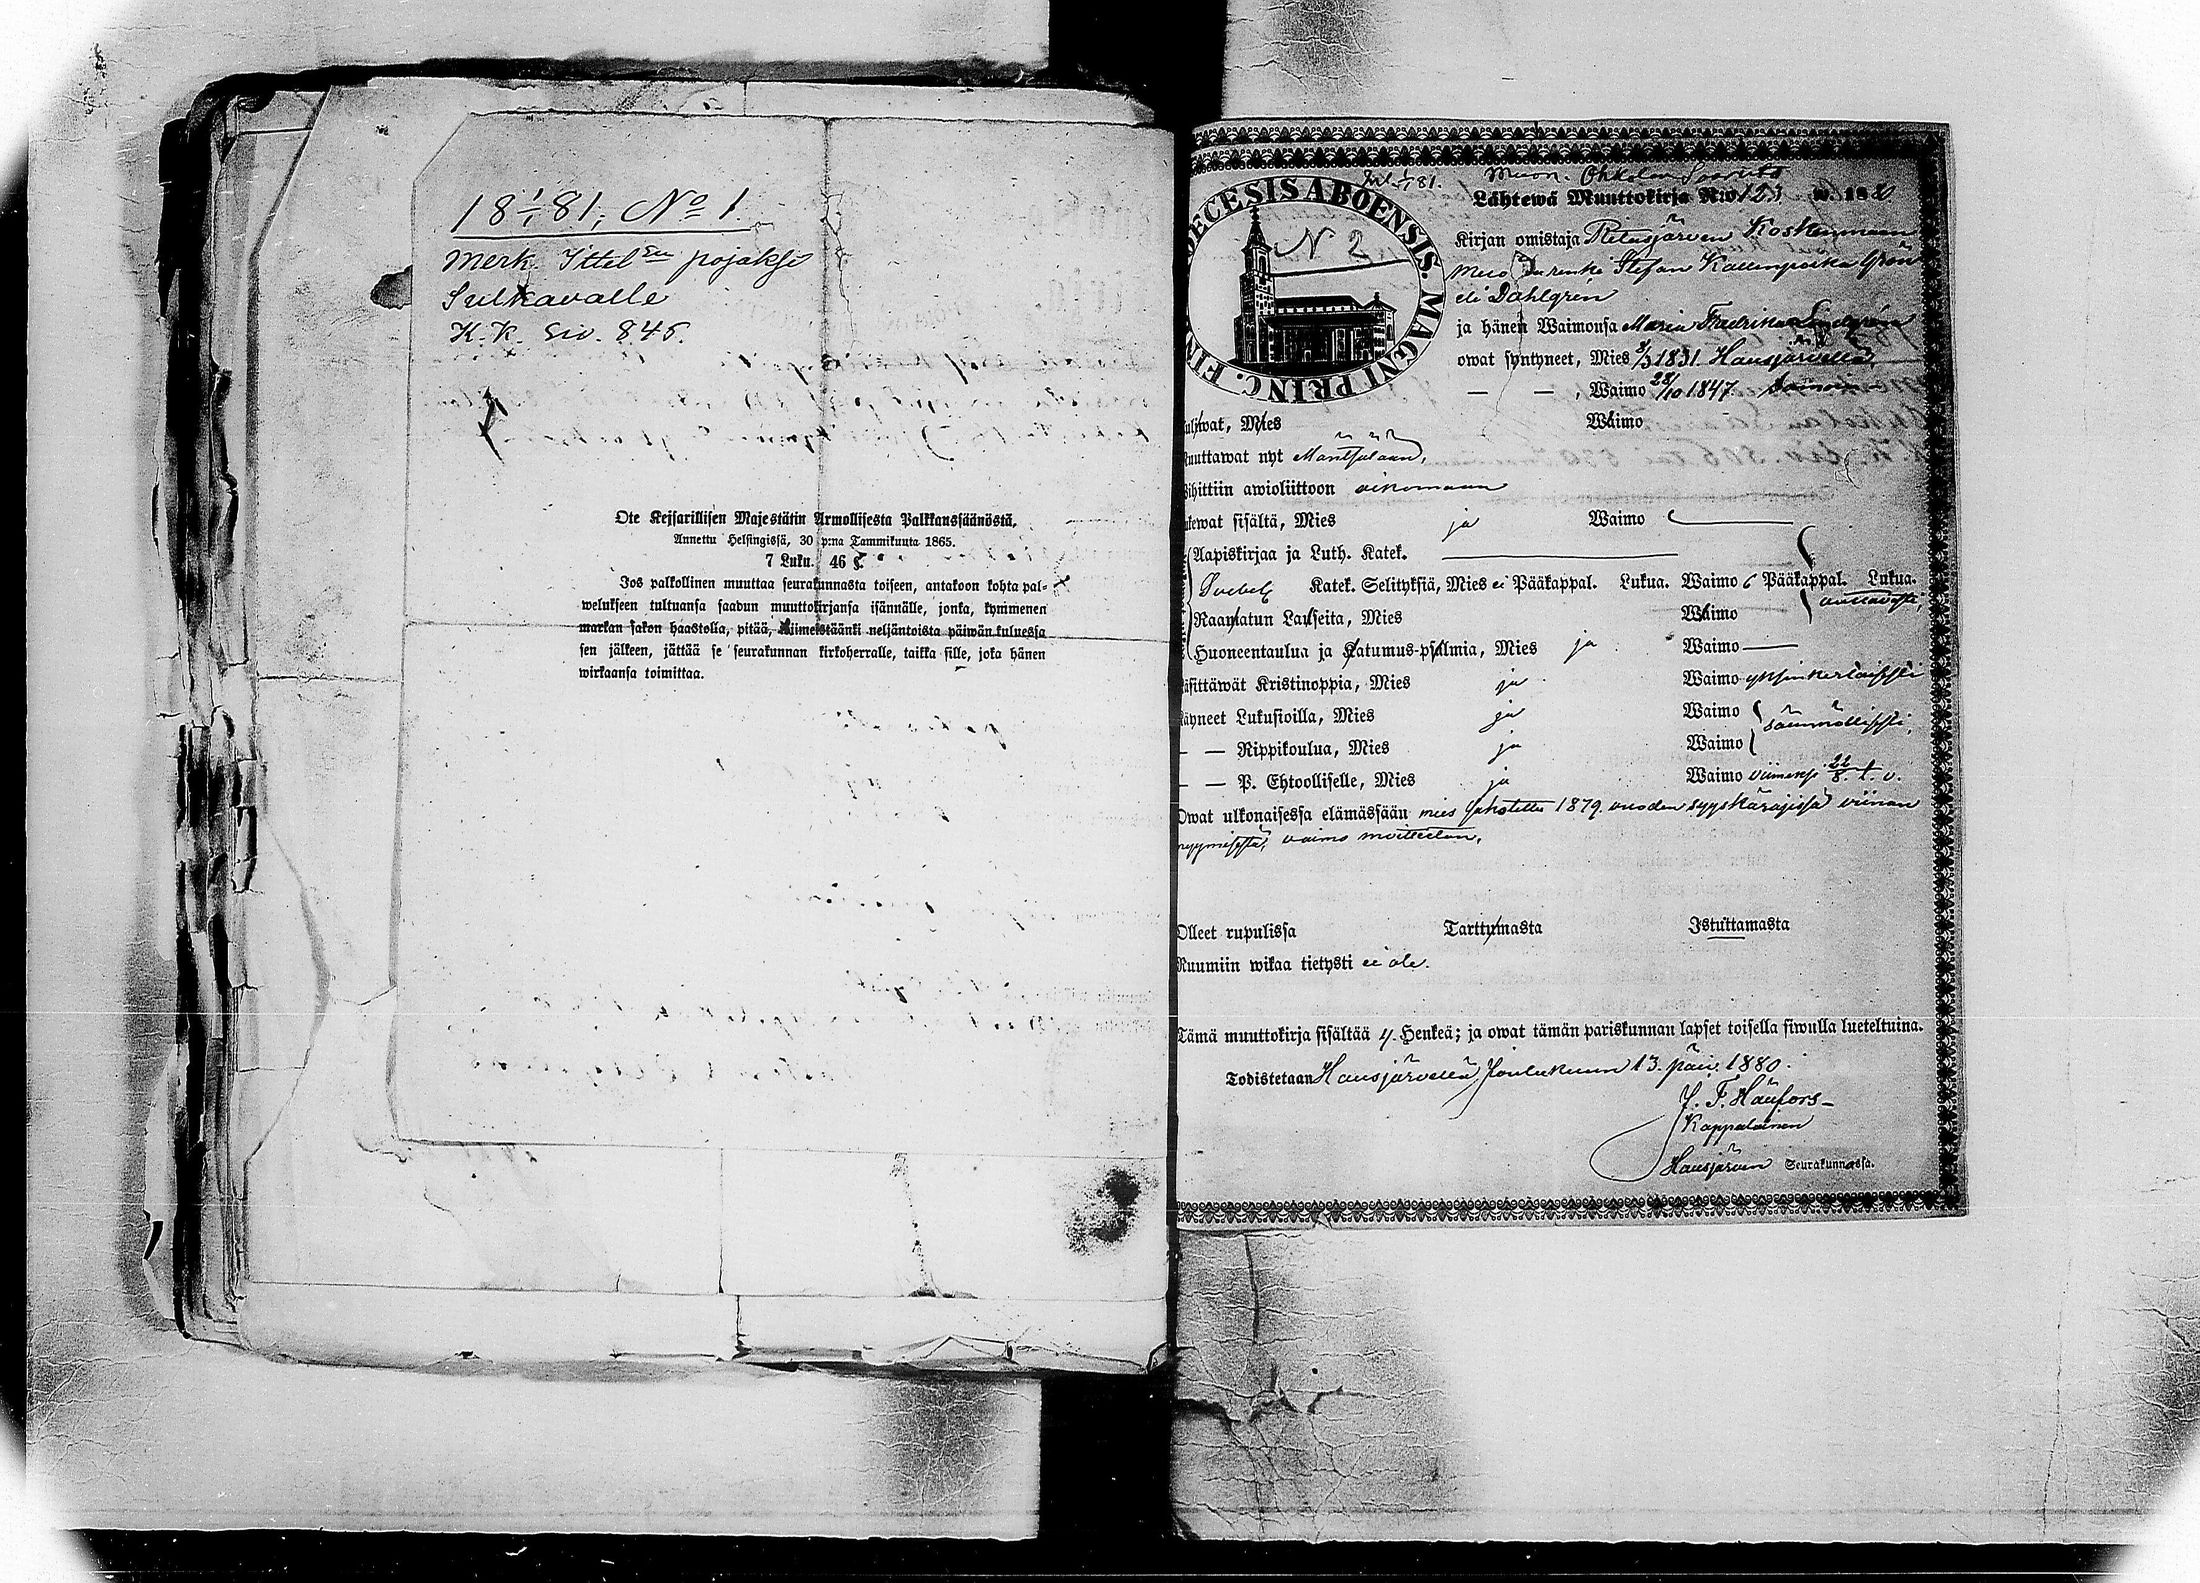 18 1/1 81, No 1.
Merk. Ittel sen pojaksi
Sulkavalle
K. K. siv. 845.
Ote Keisarillisen Majestätin Armollisesta Palkkanssäänöstä,
Annettu Helsingissä, 30 p:na Tammikuuta 1865.
7 Luku. 46 §.
Jos palkollinen muuttaa seurakunnasta toiseen, antakoon kohta pal-
welukseen tultuansa saadun muuttokirjansa isännälle, jonka, kymmenen
markan sakon haastolla, pitää, wiimeistäänki neljäntoista päiwän kuluessa
sen jälkeen, jättää se seurakunnan kirkoherralle, taikka sille, joka hänen
wirkaansa toimittaa.
1/1 81. Muon. Ohkolan
DECESIS ABOENSIS. MAGNI PRINC. FIN
N 2
Lähtewä Muuttokirja N:o 123 w. 1880
Kirjan omistaja Ritasjärven Koskenmaan
Stefan Kallenpoika Grön
eli Dahlgrén
ja hänen Waimonsa Maria Fredrika
owat syntyneet, Mies 3/3 1831. Hausjärvellä,
— — , Waimo 28/10 1847.
wat, Mies Waimo
uuttawat nyt Mäntsälään,
ihittiin awioliittoon aikomaan
kewat sisältä, Mies ja Waimo
Aapiskirjaa ja Luth. Katek.
Katek. Selityksiä, Mies ei Pääkappal. Lukua. Waimo 6 Pääkappal. Lukua.
auttavasti,
Raamatun Lauseita, Mies Waimo
Huoneentaulua ja Katumus-psalmia, Mies ja Waimo —
äsittäwät Kristinoppia, Mies ja Waimo yksinkertaisesti
äyneet Lukusioilla, Mies ja Waimo säännöllisesti,
— — Rippikoulua, Mies ja Waimo
— — P. Ehtoolliselle, Mies ja Waimo viimeksi 22/8 t. v.
Owat ulkonaisessa elämässään mies sakotettu 1879 vuoden syyskäräjissä viinan
myymisestä, vaimo moitteeton.
Olleet rupulissa Tarttumasta Istuttamasta
Ruumiin wikaa tietysti ei ole.
Tämä muuttokirja sisältää 4. Henkeä; ja owat tämän pariskunnan lapset toisella siwulla lueteltuina.
Todistetaan Hausjärvellä Joulukuun 13. päiv. 1880.
J. F. Häufors
Kappalainen
Hausjärven Seurakunnassa.